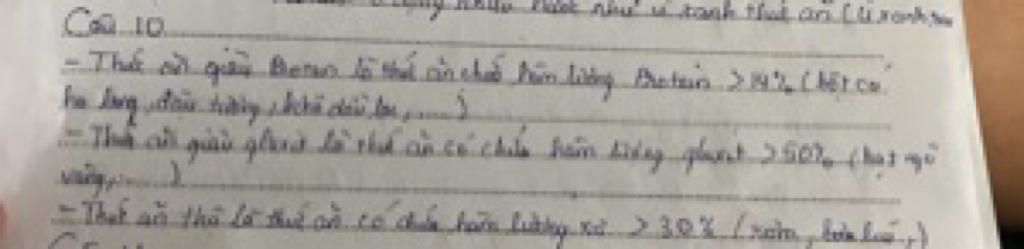 nhiều nước như ủ xanh thức ăn (ủ xanh
Câu 10
- Thức ăn giàu Protein là thức ăn chứa hàm lượng Protein > 14% (bột cá
hạ long, đậu tương, khô dầu lạc, .....)
- Thức ăn giàu gluxit là thức ăn có chứa hàm lượng gluxit > 50% (hạt ngô
vàng, .....)
- Thức ăn thô là thức ăn có chứa hàm lượng xơ > 30% (rơm,